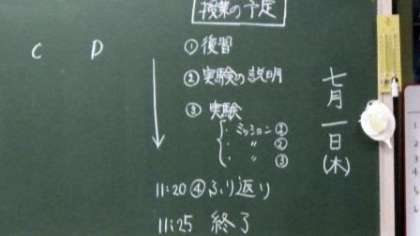 授業の予定
C D
① 復習
② 実験の説明
③ 実験
・ミッション①
・ 〃 ②
・ 〃 ③
11:20 ④ ふり返り
11:25 終了
七月一日(木)